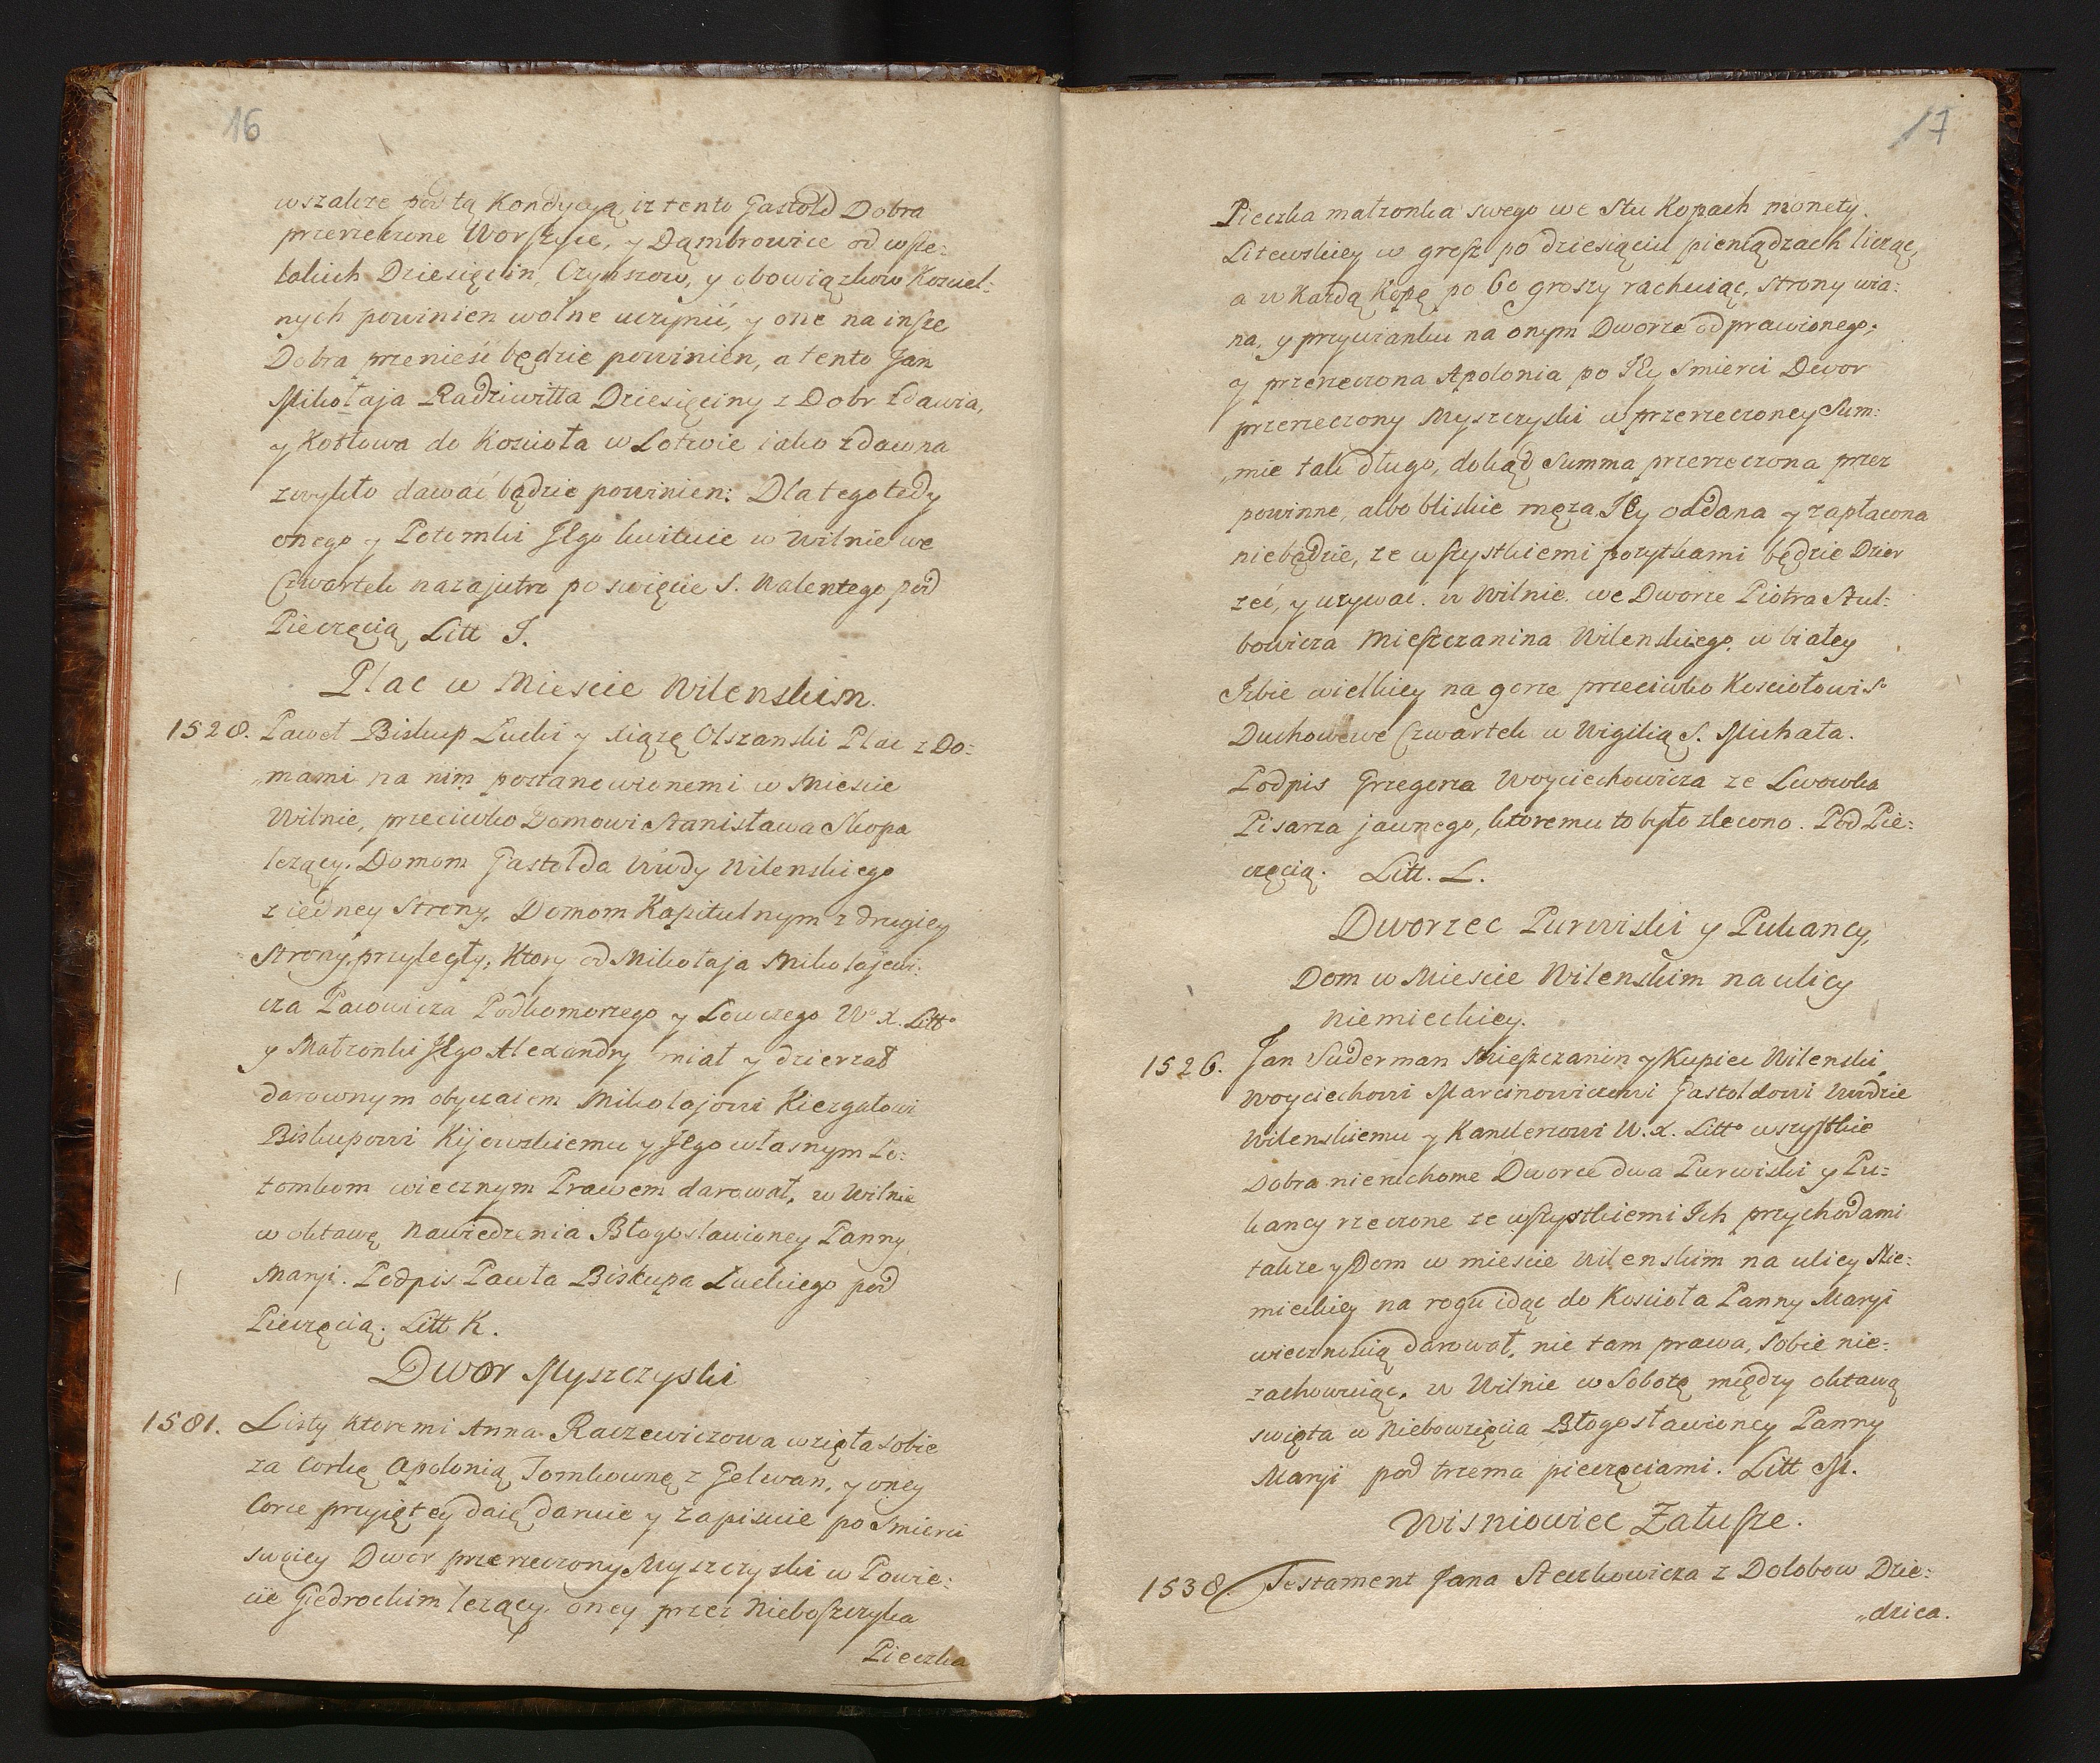 16
wszakże pod tą Kondycyą, iż tento Gastold Dobra
przerzeczone Worszyce, y Dąmbrowice od wsze:
lakich Dziesięcin, Czynszow, y obowiązkow Kościel:
nych powinien wolne uczynić, y one na insze
Dobra przenieść będzie powinien, a tento Jan
Mikołaja Radziwiłła Dziesięciny z Dobr Zdawia,
y Kotłowa do Kościoła w Łotwie iako zdawna
zwykło dawać będzie powinien: Dla tego tedy
onego y Potomki Jego kwituie w Wilnie we
Czwartek nazajutrz po swięcie S. Walentego pod
Pieczęcią Litt J.
Plac w Miescie Wilenskim.
1528. Paweł Biskup Łucki y xiążę Olszanski Plac z Do:
„mami na nim postanowionemi w Miescie
Wilnie, przeciwko Domowi Stanisława Skopa
leżący. Domom Gastołda Wwdy Wilenskiego
z iedney Strony, Domom Kapitulnym z drugiey
Strony, przyległy, Ktory od Mikołaja Mikołajewi:
cza Pacowicza Podkomorzego y Łowczego Wo X. Litto
y Małżonki Jego Alexandry miał y dzierżał
darownym obyczaiem Mikołajowi Kiezgałowi
Biskupowi Kijowskiemu y Jego własnym Po:
tomkom wiecznym Prawem darował, w Wilnie
w oktawę Nawiedzenia Błogosławioney Panny
Maryi. Podpis Pawła Biskupa Łuckiego pod
Pieczęcią. Litt K.
Dwor Myszczyski
1581. Listy ktoremi Anna Raczewiczowa wzięła sobie
za Corkę Apolonią Tomkownę z Gelwan, y oney
Corce przyiętey daię daruie y zapisuie po Smierci
swoiey Dwor przerzeczony Myszczyski w Powie:
cie Giedrockim leżący, oney przez Nieboszczyka
Pieczka
17
Pieczka małżonka swego we Stu Kopach monety
Litewskiey w grosz po dziesiąciu pieniądzach licząc,
a w Każdą Kopę po 60 groszy rachuiąc, Strony wia:
na, y przywianku na onym Dworze odprawionego;
y przerzeczona Apolonia po Jey Smierci Dwor
przerzeczony Myszczyski w przerzeczoney Sum:
„mie tak długo, dokąd Summa przerzeczona przez
powinne, albo bliskie męża Jey oddana y zapłacona
niebędzie, ze wszystkiemi pożytkami będzie Dzier
żeć, y używać. w Wilnie we Dworze Piotra Stul:
bowicza Mieszczanina Wilenskiego, w białey
Izbie wielkiey na gorze przeciwko Kosciołowi So
Duchowe we Czwartek w Wigilią S. Michała.
Podpis Grzegorza Woyciechowicza ze Lwowka
Pisarza jawnego, ktoremu to było zlecono. Pod Pie:
częcią. Litt. L.
Dworzec Purwiski y Pukancy,
Dom w Miescie Wilenskim na ulicy
Niemieckiey.
1526. Jan Suderman Mieszczanin y Kupiec Wilenski
Woyciechowi Marcinowiczowi Gastołdowi Wwdzie
Wilenskiemu y Kanclerzowi W. X. Litto wszystkie
Dobra nieruchome Dworce dwa Purwiski y Pu:
kancy rzeczone ze wszystkiemi Ich przychodami
także y Dom w miescie Wilenskim na ulicy Nie:
mieckiey na rogu idąc do Kościoła Panny Maryi
wiecznością darował, nic tam prawa, Sobie nie:
zachowuiąc, w Wilnie w Sobotę między oktawą
święta w Niebowzięcia Błogosławioney Panny
Maryi pod trzema pieczęciami. Litt M.
Wisniowiec Załusze.
1538. Testament Jana Steczkowicza z Dolobow Dzie:
„dzica.